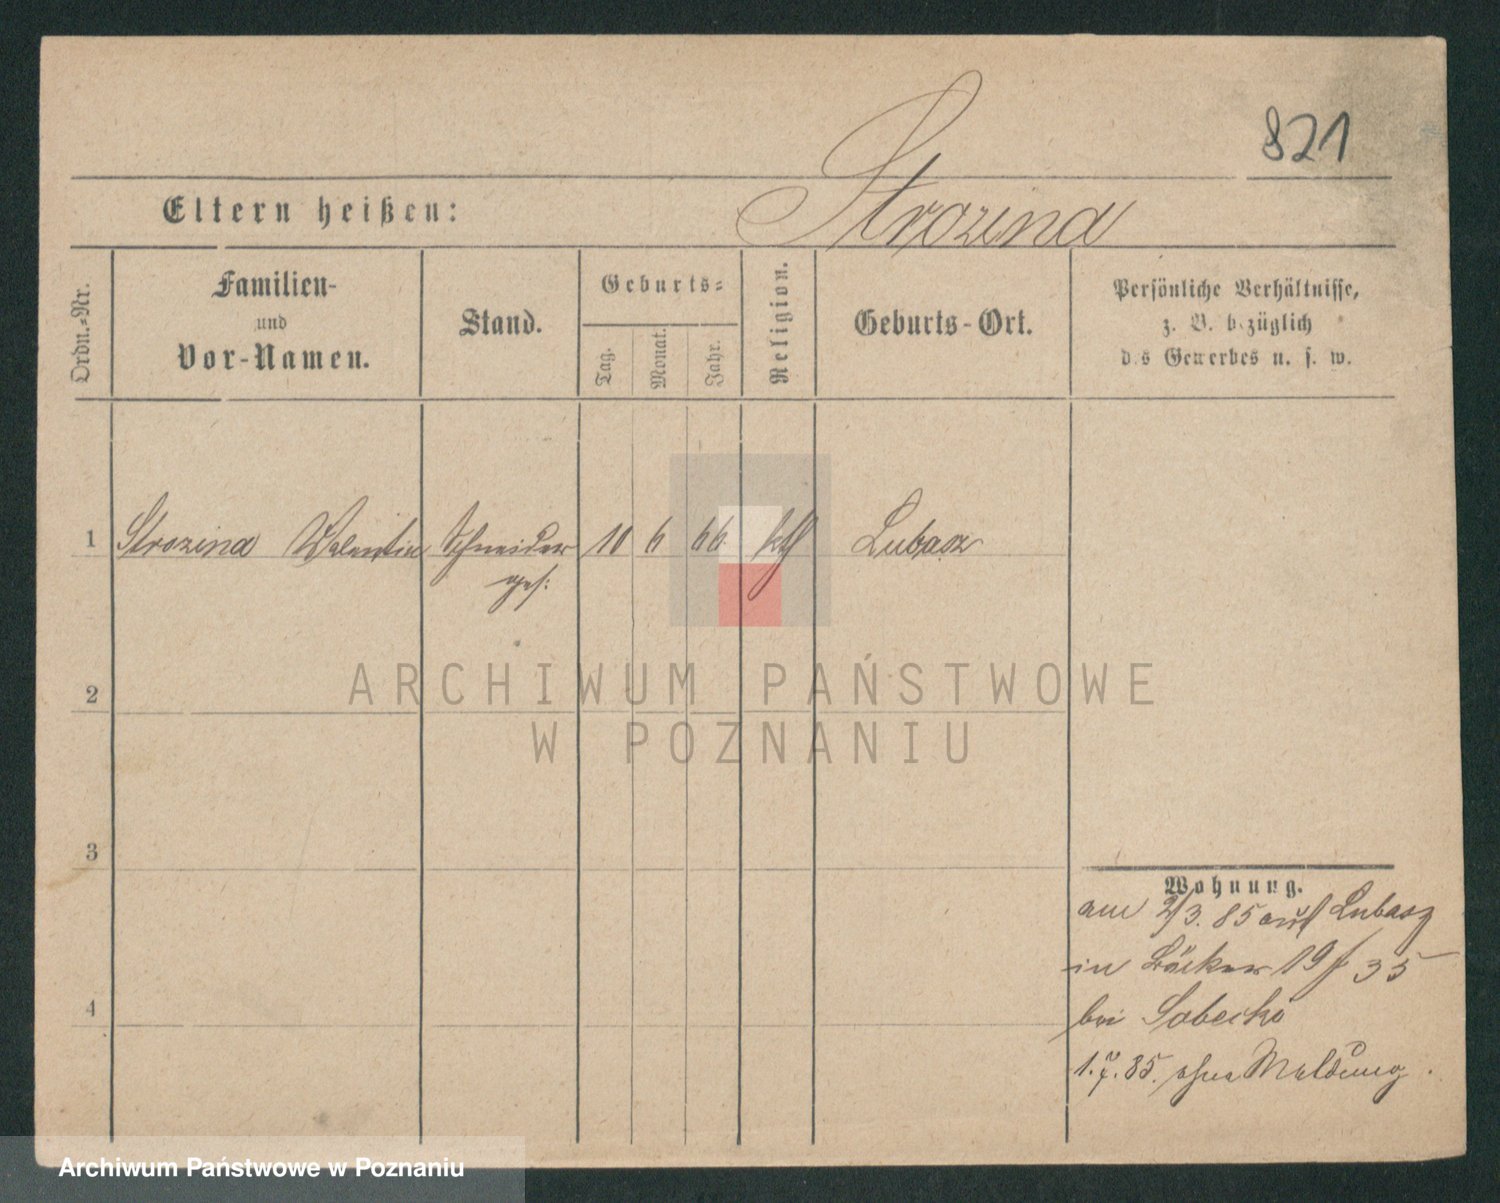 821
Strozina
Eltern heißen:
Ordn.-Nr.
Familien-
und
Vor-Namen.
Stand.
Geburts-
Tag.
Monat.
Jahr.
Religion.
Geburts-Ort.
Persönliche Verhältnisse,
z. B. bezüglich
des Gewerbes u. s. w.
1 Strozina Valentin Schneider 10 6 66 kth Lubasz
ges:
2
3
4
Wohnung.
am 2/3. 85 auf Lubasz
in Bäcker 19 / 35
bei Sobecki
1. 7. 85. ohne Meldung.
ARCHIWUM PAŃSTWOWE
W POZNANIU
Archiwum Państwowe w Poznaniu